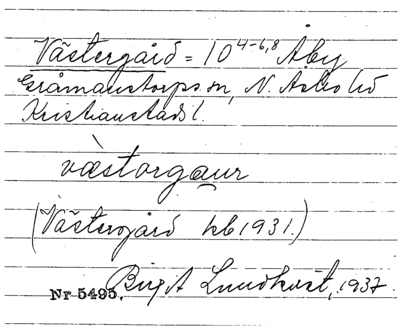 Västergård = 10 4-6,8 Åby
Gråmanstorps sn, N. Åsbo hd
Kristianstads l.
væstorgaur
(Västergård hb 1931.)
Nr 5495. Birgit Lundkvist, 1937.